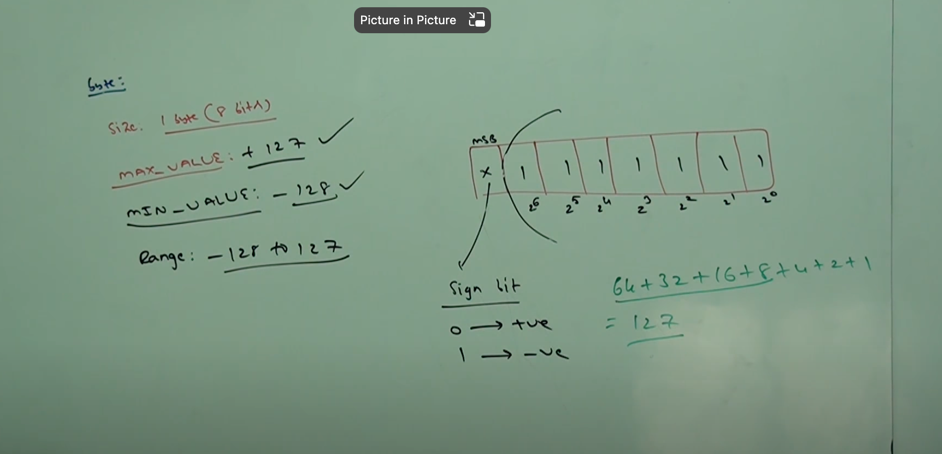 Picture in Picture
byte:
Size: 1 byte (8 bits)
MAX_VALUE: + 127 ✓
MIN_VALUE: - 128 ✓
Range: - 128 to 127
MSB
x 1 1 1 1 1 1 1
2⁶ 2⁵ 2⁴ 2³ 2² 2¹ 2⁰
Sign bit
0 → +ve
1 → -ve
64+32+16+8+4+2+1
= 127